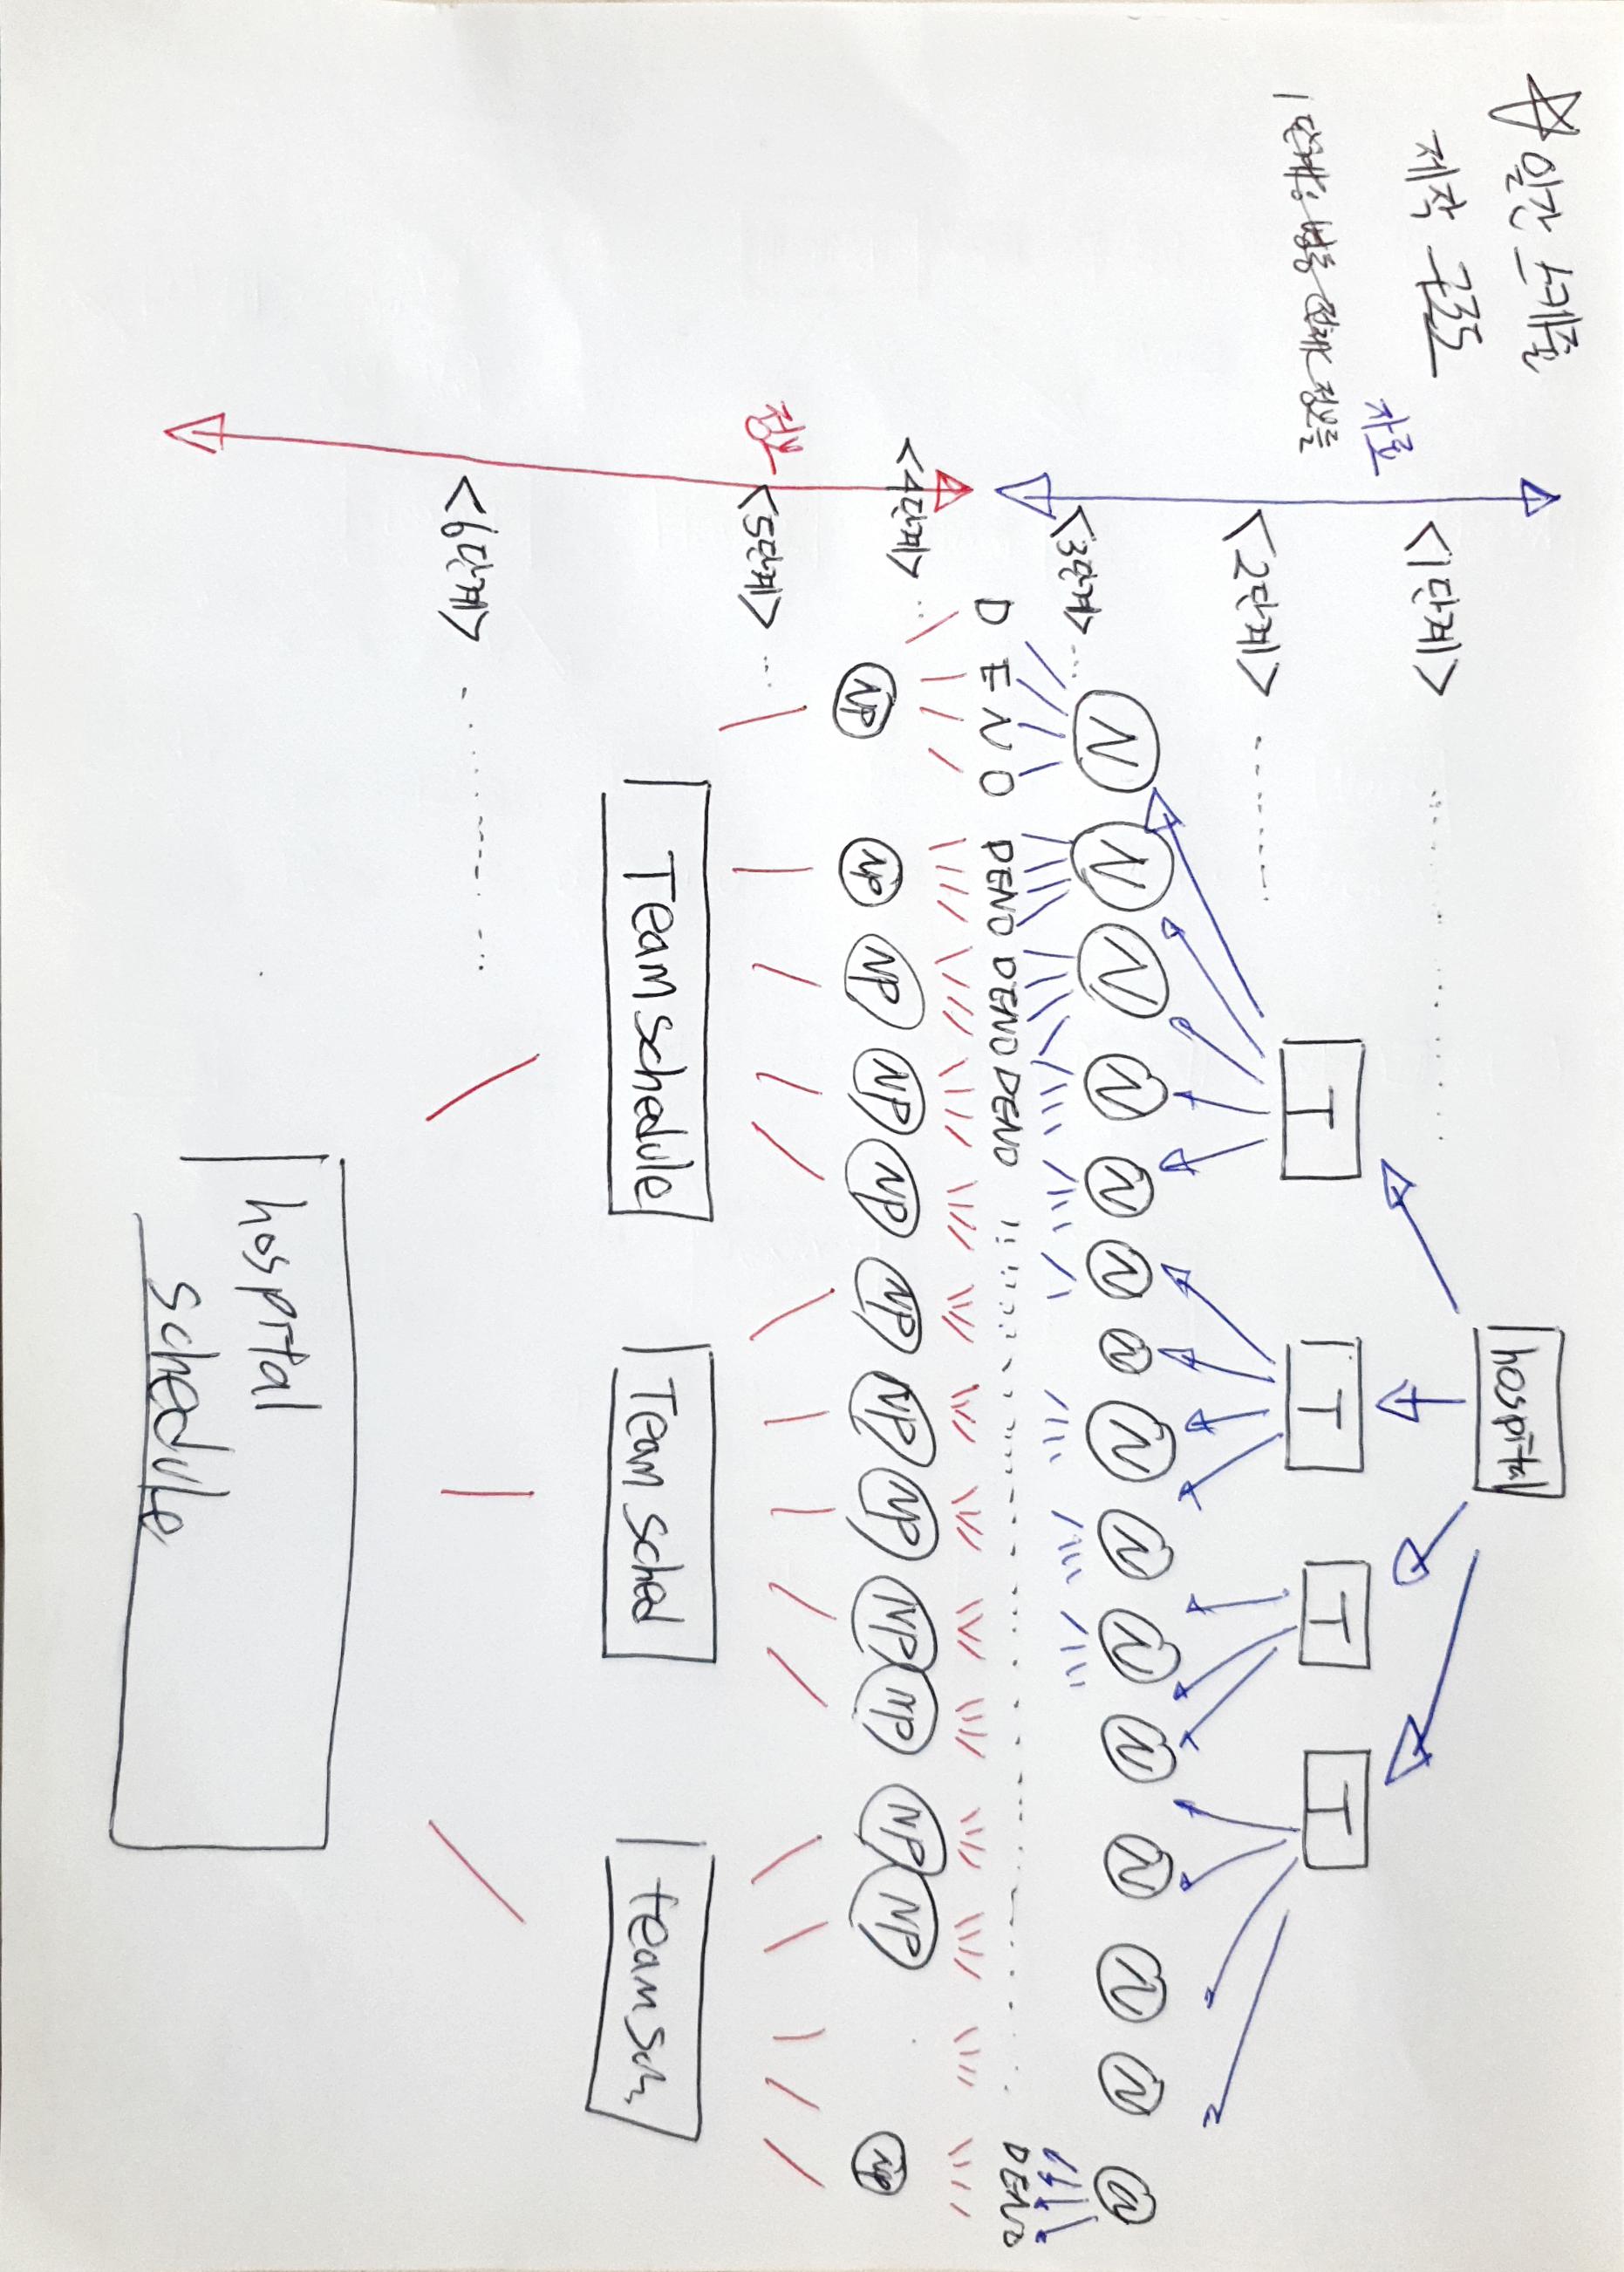 ☆ 일간 스케줄
제작 구조
1단계: 병동 전체 정보를
자료
<1단계>
hospital
<2단계>
T T T T
<3단계>
N N N N N N N N N N N N N N N
D E N O DENO DENO DENO DENO
<4단계>
NP NP NP NP NP NP NP NP NP NP NP NP NP
정보
<5단계>
Team schedule Team sched team sch
<6단계>
hospital
schedule